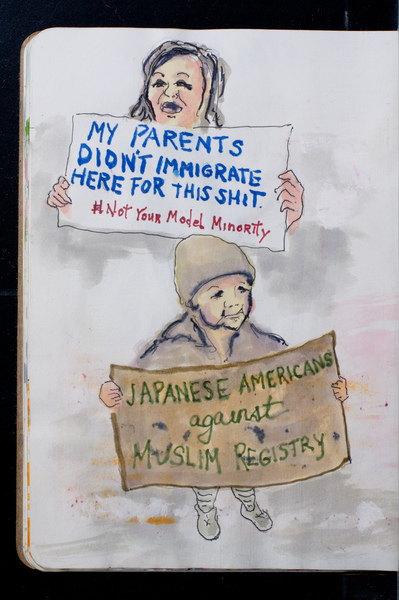 MY PARENTS
DIDN'T IMMIGRATE
HERE FOR THIS SHIT.
#Not Your Model Minority
JAPANESE AMERICANS
against
MUSLIM REGISTRY